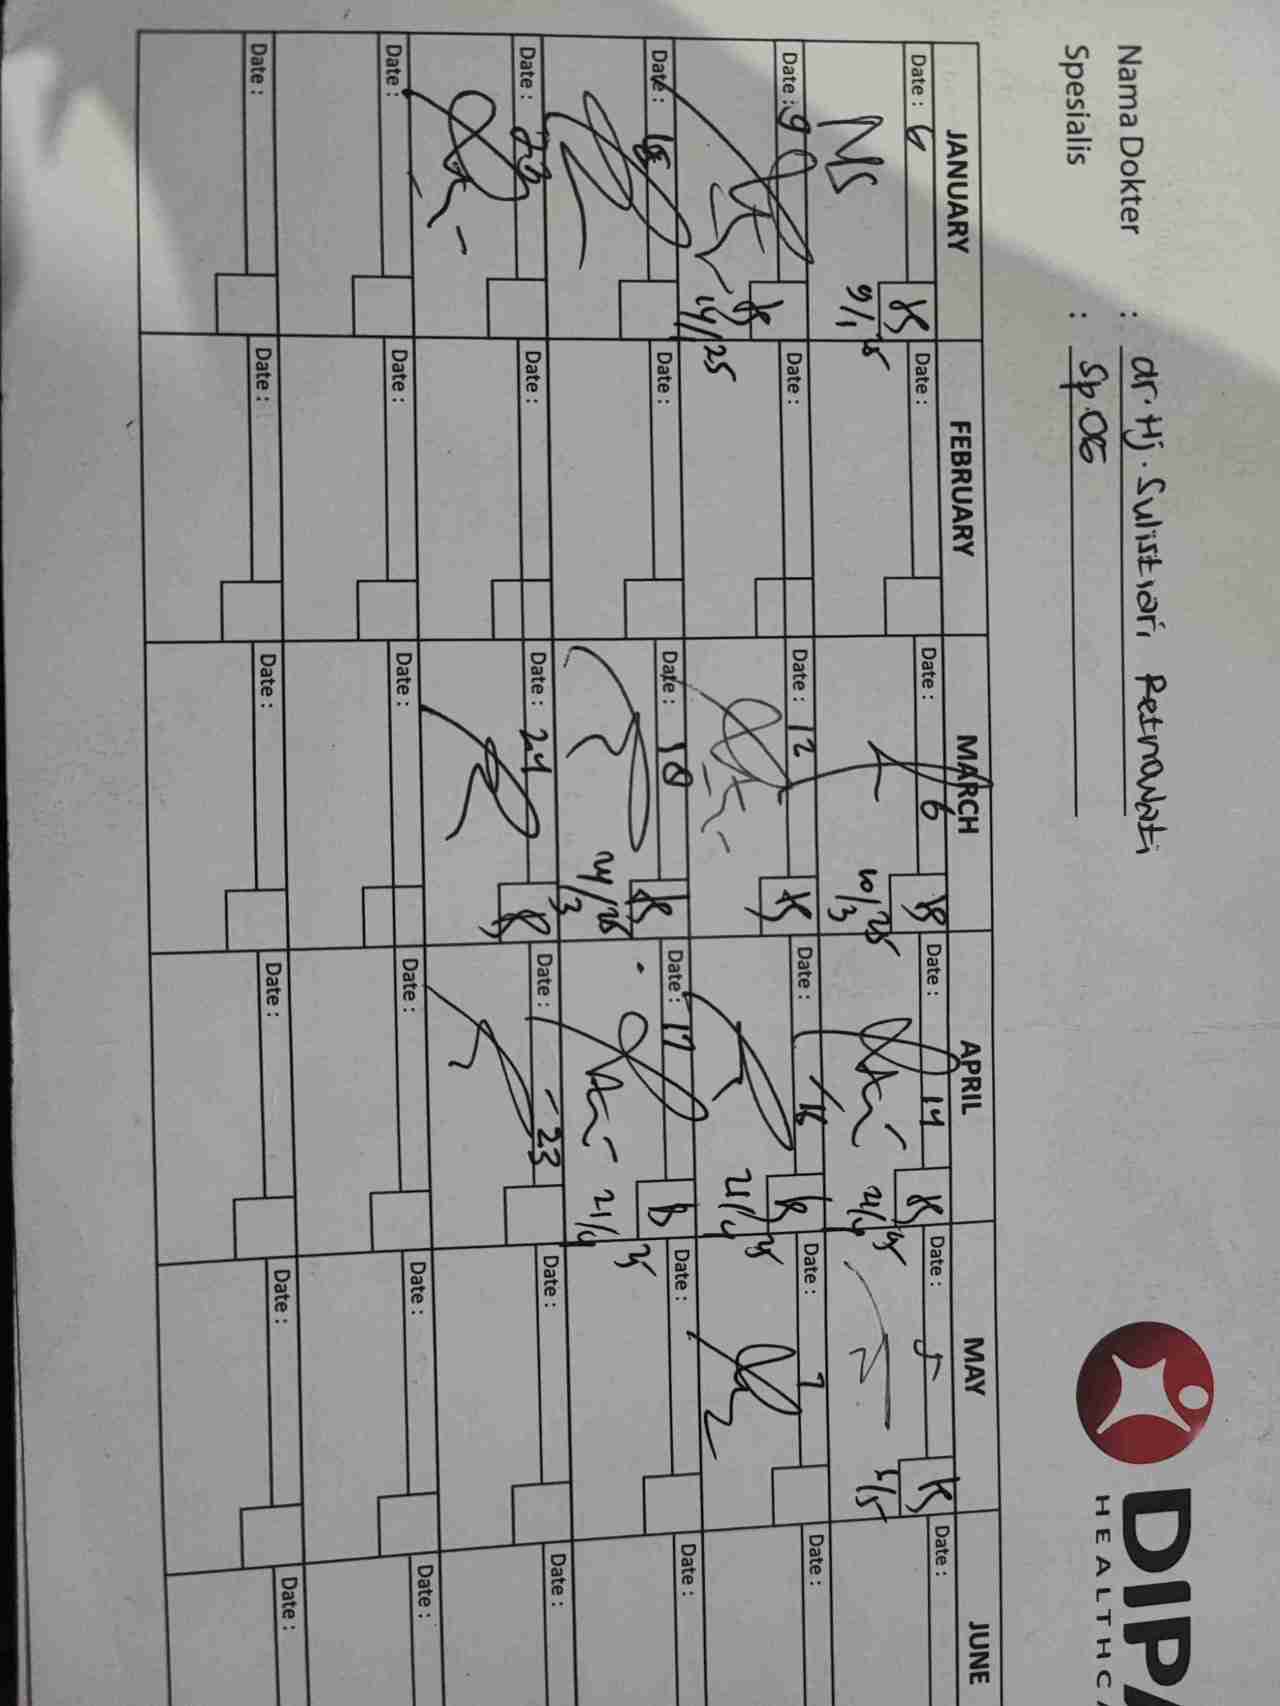 Nama Dokter : dr. Hj. Sulistiari Retnowati
Spesialis : Sp.OG
DIPA
HEALTHCA
JANUARY FEBRUARY MARCH APRIL MAY JUNE
Date : 6 Date : Date : 6 Date : 14 Date : 5 Date :
9/1 25 10/3 25 21/4 25 5/5
Date : 9 Date : Date : 12 Date : 16 Date : 7 Date :
14/1 25 21/4 25
Date : 16 Date : Date : 18 Date : 17 Date : Date :
24/3 25 21/4 25
Date : 20 Date : Date : 24 Date : 23 Date : Date :
Date : Date : Date : Date : Date : Date :
Date : Date : Date : Date : Date : Date :